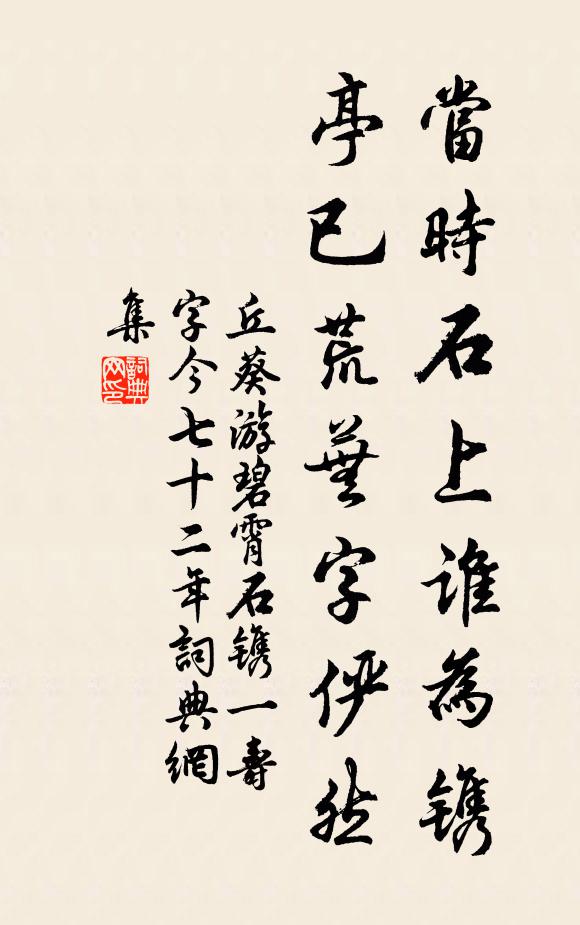 當時石上誰為鐫
亭已荒蕪字儼然
丘葵游碧霄石鐫一壽
字今七十二年詞典網
集
詞典
网印